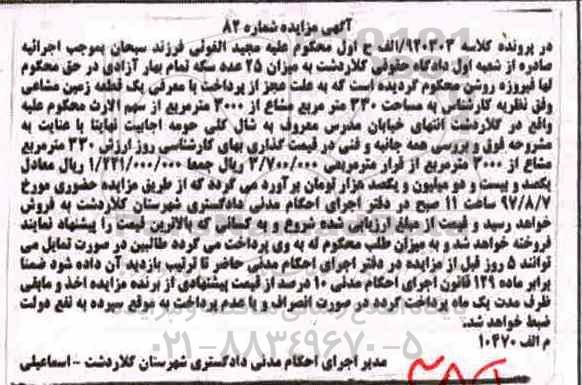 آگهی مزایده شماره ۸۲
در پرونده کلاسه ۹۴۰۳۰۳/الف ح اول محکوم علیه مجید الفونی فرزند سبحان بموجب اجرائیه
صادره از شعبه اول دادگاه حقوقی کلاردشت به میزان ۲۵ عدد سکه تمام بهار آزادی در حق محکوم
لها فیروزه روشن محکوم گردیده است که به علت عجز از پرداخت با معرفی یک قطعه زمین مشاعی
وفق نظریه کارشناس به مساحت ۳۳۰ متر مربع مشاع از ۳۰۰۰ مترمربع از سهم الارث محکوم علیه
واقع در کلاردشت انتهای خیابان مدرس معروف به شال کلی حومه اجابیت نهایتا با عنایت به
مشروحه فوق و بررسی همه جانبه و فنی در قیمت گذاری بهای کارشناسی روز ارزش ۳۳۰ مترمربع
مشاع از ۳۰۰۰ مترمربع از قرار مترمربعی ۳/۷۰۰/۰۰۰ ریال جمعا ۱/۲۲۱/۰۰۰/۰۰۰ ریال معادل
یکصد و بیست و دو میلیون و یکصد هزار تومان برآورد می گردد که از طریق مزایده حضوری مورخ
۹۷/۸/۷ ساعت ۱۱ صبح در دفتر اجرای احکام مدنی دادگستری شهرستان کلاردشت به فروش
خواهد رسید و قیمت از مبلغ ارزیابی شده شروع و به کسانی که بالاترین قیمت را پیشنهاد نمایند
فروخته خواهد شد و به میزان طلب محکوم له به وی پرداخت می گردد طالبین در صورت تمایل می
توانند ۵ روز قبل از مزایده در دفتر اجرای احکام مدنی حاضر تا ترتیب بازدید آن داده شود ضمنا
برابر ماده ۱۲۹ قانون اجرای احکام مدنی ۱۰ درصد از قیمت پیشنهادی از برنده مزایده اخذ و مابقی
ظرف مدت یک ماه پرداخت گردد در صورت انصراف و یا عدم پرداخت به موقع سپرده به نفع دولت
ضبط خواهد شد.
م الف ۱۰۴۷۰
مدیر اجرای احکام مدنی دادگستری شهرستان کلاردشت - اسماعیلی
۰۲۱-۸۸۳۴۹۶۷۰-۵